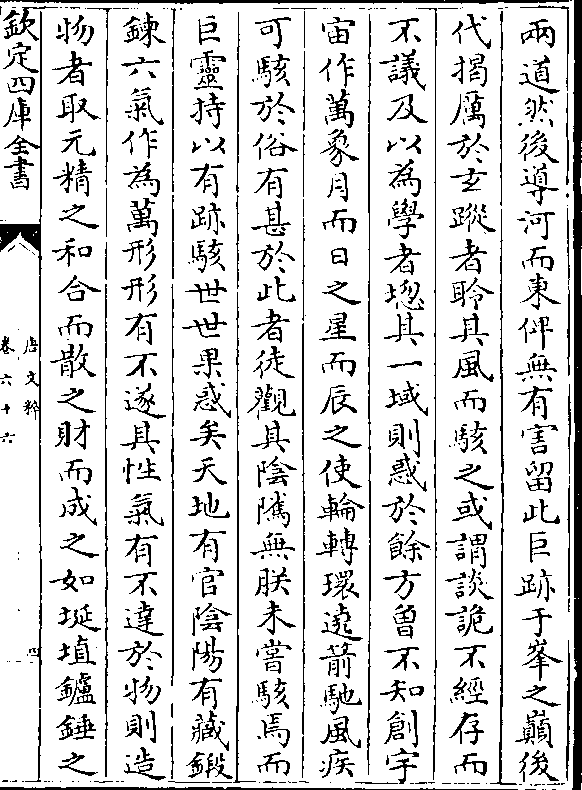 兩道然後導河而東俾無有害留此巨跡于峯之巔後
代揭厲於玄蹤者聆其風而駭之或謂談詭不經存而
不議及以為學者㧾其一域則惑於餘方曾不知創宇
宙作萬象月而日之星而辰之使輪轉環遶箭馳風疾
可駭於俗有甚於此者徒觀其陰隲無朕未嘗駭焉而
巨靈持以有跡駭世世果惑矣天地有官陰陽有藏鍛
鍊六氣作為萬形形有不遂其性氣有不達於物則造
物者取元精之和合而散之財而成之如埏埴鑪錘之
欽定四庫全書
唐文粹
卷六十六
四